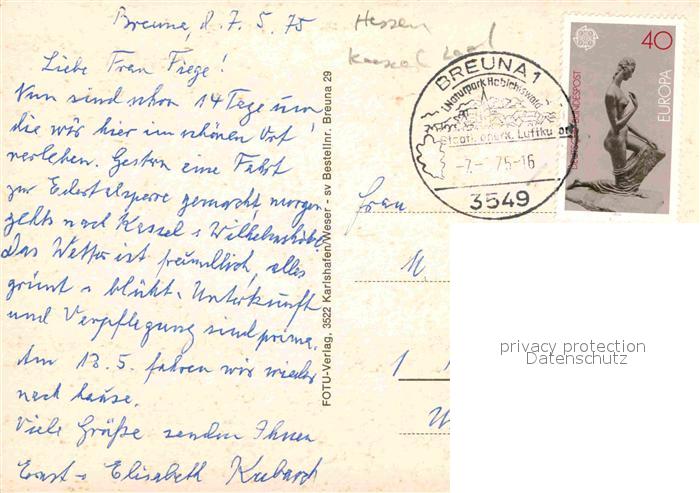 Breuna, d. 7. 5. 75
Liebe Frau Fiege!
Nun sind schon 14 Tage um
die wir hier im schönen Ort
verleben. Gestern eine Fahrt
zur Edertalsperre gemacht, morgen
gehts nach Kassel s Wilhelmshöhe.
Das Wetter ist freundlich, alles
grünt s blüht. Unterkunft
und Verpflegung sind prima.
Am 13. 5. fahren wir wieder
nach hause.
Viele Grüße senden Ihnen
Ernst s Elisabeth
FOTU-Verlag, 3522 Karlshafen/Weser - sv Bestellnr. Breuna 29
Hessen
Kassel Land
BREUNA 1
i. Naturpark Habichtswald
Staatl. anerk. Luftkurort
-7.-5.75-16
3549
DEUTSCHE BUNDESPOST
40
EUROPA
Frau
privacy protection
Datenschutz